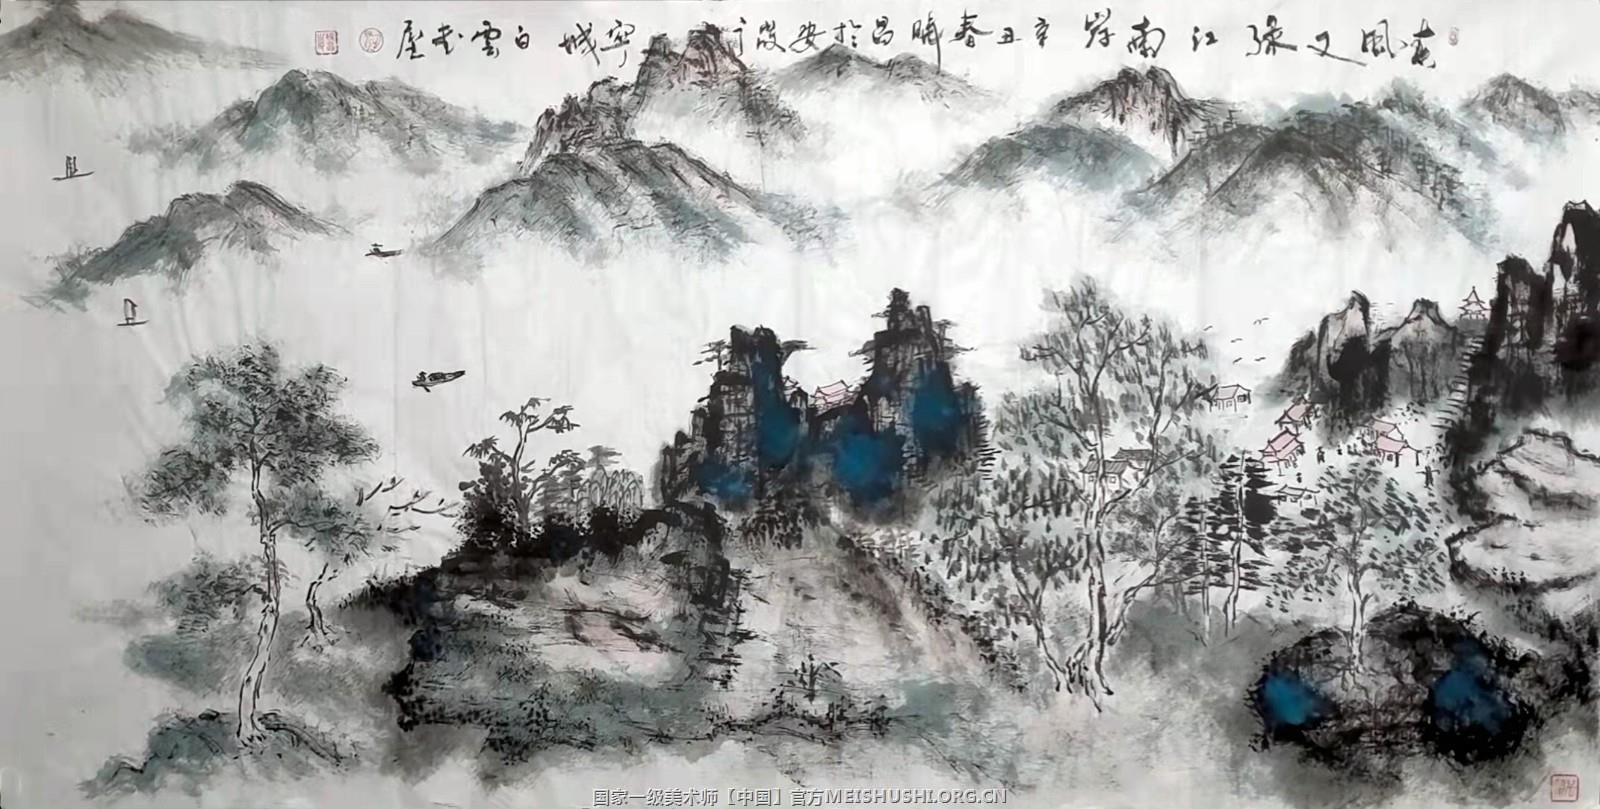 春風又綠江南岸 辛丑春曉昌於安
寧城白雲書屋
国家一级美术师【中国】官方MEISHUSHI.ORG.CN